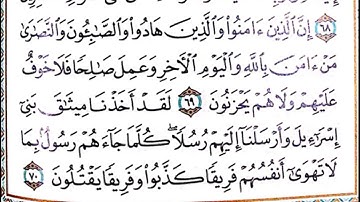 ٦٨ إِنَّ ٱلَّذِينَ ءَامَنُوا۟ وَٱلَّذِينَ هَادُوا۟ وَٱلصَّـٰبِـُٔونَ وَٱلنَّصَـٰرَىٰ
مَنْ ءَامَنَ بِٱللَّهِ وَٱلْيَوْمِ ٱلْـَٔاخِرِ وَعَمِلَ صَـٰلِحًا فَلَا خَوْفٌ
عَلَيْهِمْ وَلَا هُمْ يَحْزَنُونَ ٦٩ لَقَدْ أَخَذْنَا مِيثَـٰقَ بَنِىٓ
إِسْرَٰٓءِيلَ وَأَرْسَلْنَآ إِلَيْهِمْ رُسُلًا ۖ كُلَّمَا جَآءَهُمْ رَسُولٌۢ بِمَا
لَا تَهْوَىٰٓ أَنفُسُهُمْ فَرِيقًا كَذَّبُوا۟ وَفَرِيقًا يَقْتُلُونَ ٧٠